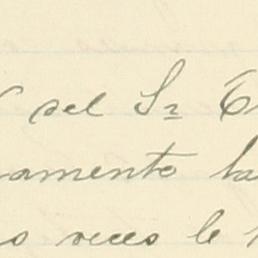 del Sr
amento ha
s veces le